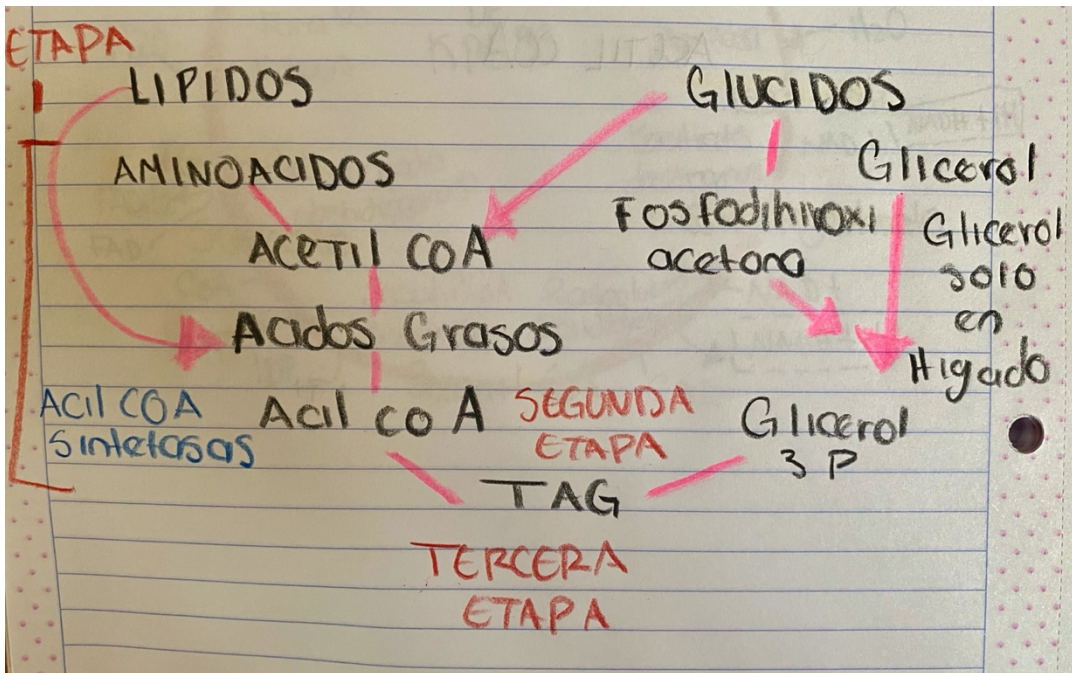 ETAPA
1
LIPIDOS
GLUCIDOS
AMINOACIDOS
Glicerol
Fosfodihiroxi
acetona
Glicerol
solo
en
Higado
ACETIL COA
Acidos Grasos
Acil COA
Sintetasas
Acil co A
SEGUNDA
ETAPA
Glicerol
3 P
TAG
TERCERA
ETAPA